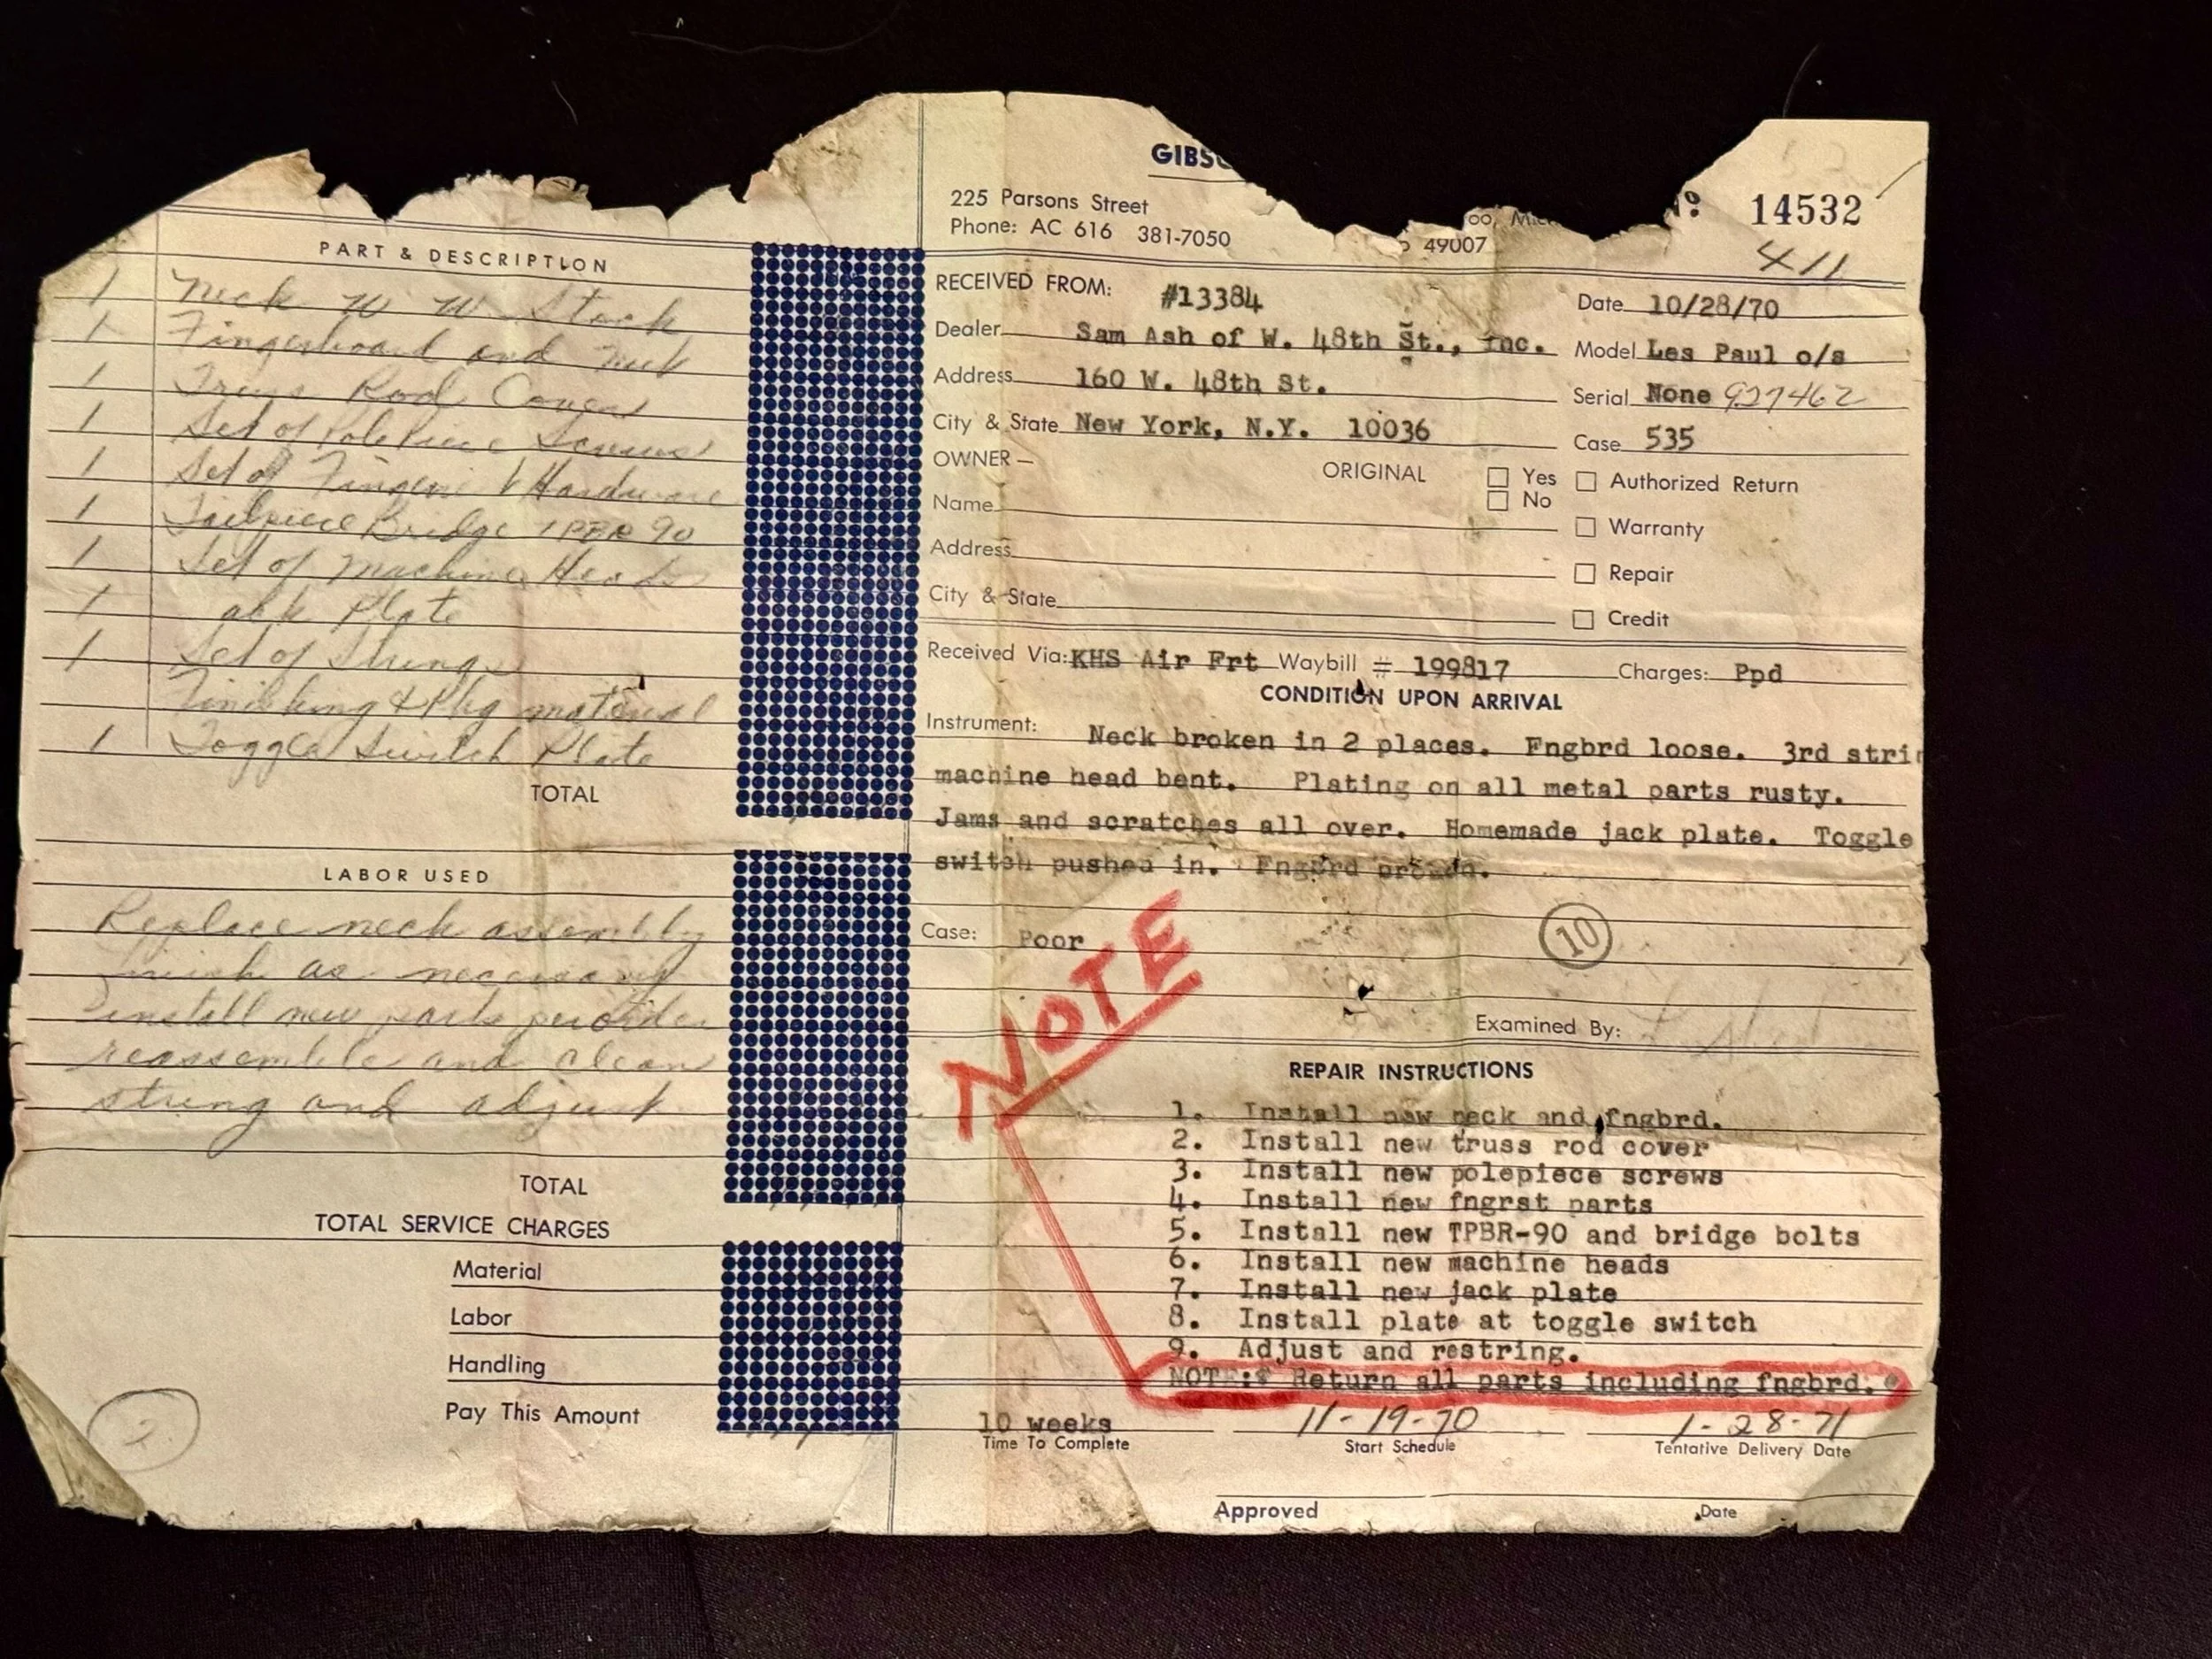 PART & DESCRIPTION
1 Neck W W Stock
1 Fingerboard and
1 Truss Rod Cover
1 Set of Polepiece Screws
1 Set of Hardware
1 Tailpiece Bridge TPBR 90
1 Set of Machine Heads
1 ack Plate
1 Set of Strings
Finishing & Pkg material
1 Toggle Switch Plate
TOTAL
LABOR USED
Replace neck assembly
as necessary
install new parts
reassemble and clean
string and adjust
TOTAL
TOTAL SERVICE CHARGES
Material
Labor
Handling
Pay This Amount
2
GIBS
225 Parsons Street
Phone: AC 616 381-7050
oo, Mic
49007
No 14532
411
RECEIVED FROM: #13384
Date 10/28/70
Dealer Sam Ash of W. 48th St., Inc.
Model Les Paul o/s
Address 160 W. 48th St.
Serial None 927462
City & State New York, N.Y. 10036
Case 535
OWNER —
ORIGINAL Yes No
Authorized Return
Name
Warranty
Address
Repair
City & State
Credit
Received Via: KHS Air Frt Waybill # 199817 Charges: Ppd
CONDITION UPON ARRIVAL
Instrument: Neck broken in 2 places. Fngbrd loose. 3rd stri
machine head bent. Plating on all metal parts rusty.
Jams and scratches all over. Homemade jack plate. Toggle
switch pushed in. Fngbrd
Case: Poor
10
NOTE
Examined By:
REPAIR INSTRUCTIONS
1. Install new neck and fngbrd.
2. Install new truss rod cover
3. Install new polepiece screws
4. Install new fngrst parts
5. Install new TPBR-90 and bridge bolts
6. Install new machine heads
7. Install new jack plate
8. Install plate at toggle switch
9. Adjust and restring.
NOTE:* Return all parts including fngbrd.*
10 weeks 11-19-70 1-28-71
Time To Complete Start Schedule Tentative Delivery Date
Approved Date